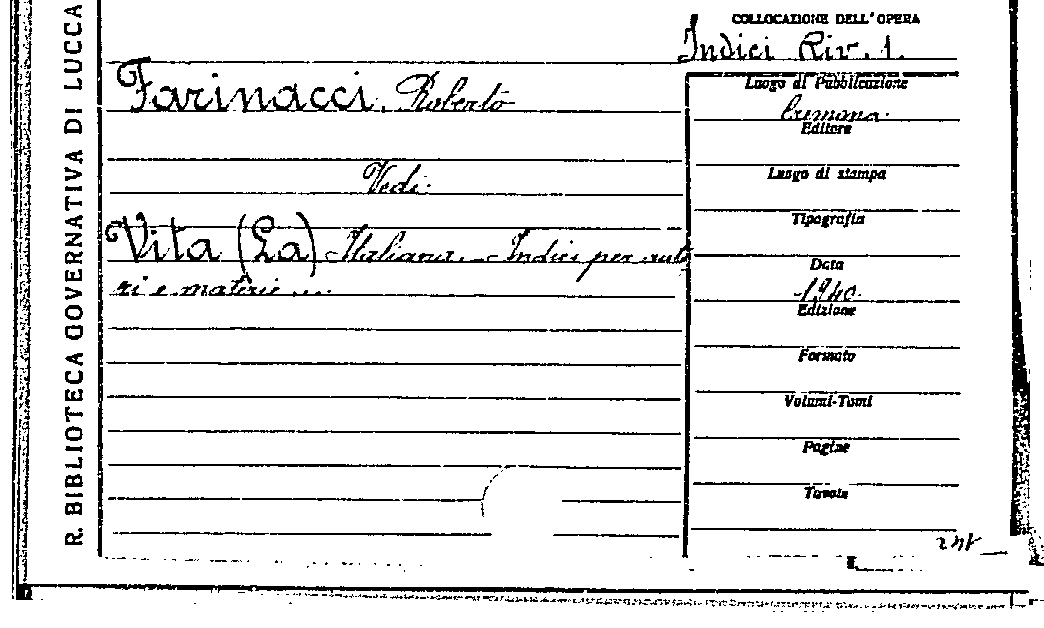 R. BIBLIOTECA GOVERNATIVA DI LUCCA
COLLOCAZIONE DELL'OPERA
Indici Riv. 1.
Farinacci, Roberto
Vedi
Vita (La) Italiana. - Indici per auto
ri e materie ...
Luogo di Pubblicazione
Cremona
Editore
Luogo di stampa
Tipografia
Data
1940
Edizione
Formato
Volumi-Tomi
Pagine
Tavole